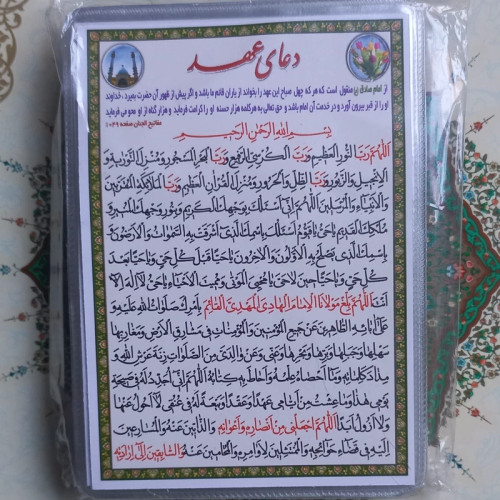 دعای عهد
از امام صادق (ع) منقول است که هر که چهل صباح این عهد را بخواند از یاران قائم ما باشد و اگر پیش از ظهور آن حضرت بمیرد ، خداوند
او را از قبر بیرون آورد و در خدمت آن امام باشد و حق تعالی به هر کلمه هزار حسنه او را کرامت فرماید و هزار گناه از او محو می فرماید
مفاتیح الجنان صفحه ۱۰۳۹
بِسْمِ اللهِ الرَّحْمنِ الرَّحيمِ
اَللّهُمَّ رَبَّ النُّورِ الْعَظيمِ وَرَبَّ الْكُرْسِيِّ الرَّفيعِ وَرَبَّ الْبَحْرِ الْمَسْجُورِ وَمُنْزِلَ التَّوْريةِ وَ
الْاِنْجيلِ وَالزَّبُورِ وَرَبَّ الظِّلِّ وَالْحَرُورِ وَمُنْزِلَ الْقُرْانِ الْعَظيمِ وَرَبَّ الْمَلائِكَةِ الْمُقَرَّبينَ
وَالْاَنْبِياءِ وَالْمُرْسَلينَ اَللّهُمَّ اِنّي اَسْئَلُكَ بِوَجْهِكَ الْكَريمِ وَبِنُورِ وَجْهِكَ الْمُنيرِ وَ
مُلْكِكَ الْقَديمِ يا حَيُّ يا قَيُّومُ اَسْئَلُكَ بِاسْمِكَ الَّذي اَشْرَقَتْ بِهِ السَّمواتُ وَالْاَرَضُونَ وَ
بِاسْمِكَ الَّذي يَصْلَحُ بِهِ الْاَوَّلُونَ وَالْاخِرُونَ يا حَيّاً قَبْلَ كُلِّ حَيٍّ وَيا حَيّاً بَعْدَ
كُلِّ حَيٍّ وَيا حَيّاً حينَ لا حَيَّ يا مُحْيِيَ الْمَوْتى وَمُميتَ الْاَحْياءِ يا حَيُّ لا اِلهَ اِلاّ
اَنْتَ اَللّهُمَّ بَلِّغْ مَوْلانَا الْاِمامَ الْهادِيَ الْمَهْدِيَّ الْقائِمَ بِاَمْرِكَ صَلَواتُ اللهِ عَلَيْهِ وَ
عَلى ابائِهِ الطّاهِرينَ عَنْ جَميعِ الْمُؤْمِنينَ وَالْمُؤْمِناتِ في مَشارِقِ الْاَرْضِ وَمَغارِبِها
سَهْلِها وَجَبَلِها وَبَرِّها وَبَحْرِها وَعَنّي وَعَنْ والِدَيَّ مِنَ الصَّلَواتِ زِنَةَ عَرْشِ اللهِ وَ
مِدادَ كَلِماتِهِ وَما اَحْصاهُ عِلْمُهُ وَاَحاطَ بِهِ كِتابُهُ اَللّهُمَّ اِنّي اُجَدِّدُ لَهُ في صَبيحَةِ
يَوْمي هذا وَما عِشْتُ مِنْ اَيّامي عَهْداً وَعَقْداً وَبَيْعَةً لَهُ في عُنُقي لا اَحُولُ عَنْها
وَلا اَزُولُ اَبَداً اَللّهُمَّ اجْعَلْني مِنْ اَنْصارِهِ وَاَعْوانِهِ وَالذّابّينَ عَنْهُ وَالْمُسارِعينَ
اِلَيْهِ في قَضاءِ حَوائِجِهِ وَالْمُمْتَثِلينَ لِاَوامِرِهِ وَالْمُحامينَ عَنْهُ وَالسّابِقينَ اِلى اِرادَتِهِ